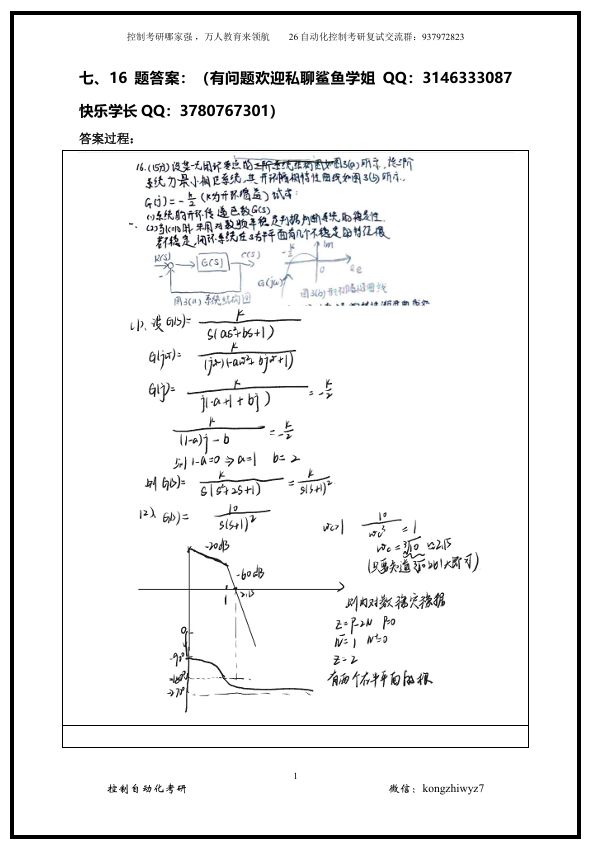 控制考研哪家强，万人教育来领航 26自动化控制考研复试交流群：937972823
七、16 题答案：（有问题欢迎私聊鲨鱼学姐 QQ：3146333087
快乐学长QQ：3780767301）
答案过程：
16.(15分)设某一
所示,
系统为最小相位系统,其开环幅相特性曲线如图3(b)所示.
G(j)=-k/2 (K为开环增益) 试求:
(1)系统的开环传递函数G(s)
(2)当K=10时,采用对数频率稳定判据判断系统的稳定性.
若不稳定,闭环系统在s右半平面有几个不稳定的特征根
R(s) G(s) C(s)
-k/2 Im
0 Re
G(jω)
图3(a)系统结构图 图3(b)开环幅相曲线
(1)、设G(s)= K/(s(as²+bs+1))
G(jω)= K/((jω)(-aω²+bjω+1))
G(j)= K/(j(-a+1+bj)) = -K/2
K/((1-a)j-b) = -K/2
则1-a=0 ⇒ a=1 b=2
则G(s)= K/(s(s²+2s+1)) = K/(s(s+1)²)
(2)、G(s)= 10/(s(s+1)²)
ωc>1 10/ωc³ = 1
ωc=³√10 ≈2.15
-20dB
-60dB
1 2.15
则由对数稳定判据
Z=P-2N P=0
N⁻=1 N⁺=0
Z=2
有两个右半平面的根
0
-90°
-180°
-270°
1
控制自动化考研 微信：kongzhiwyz7